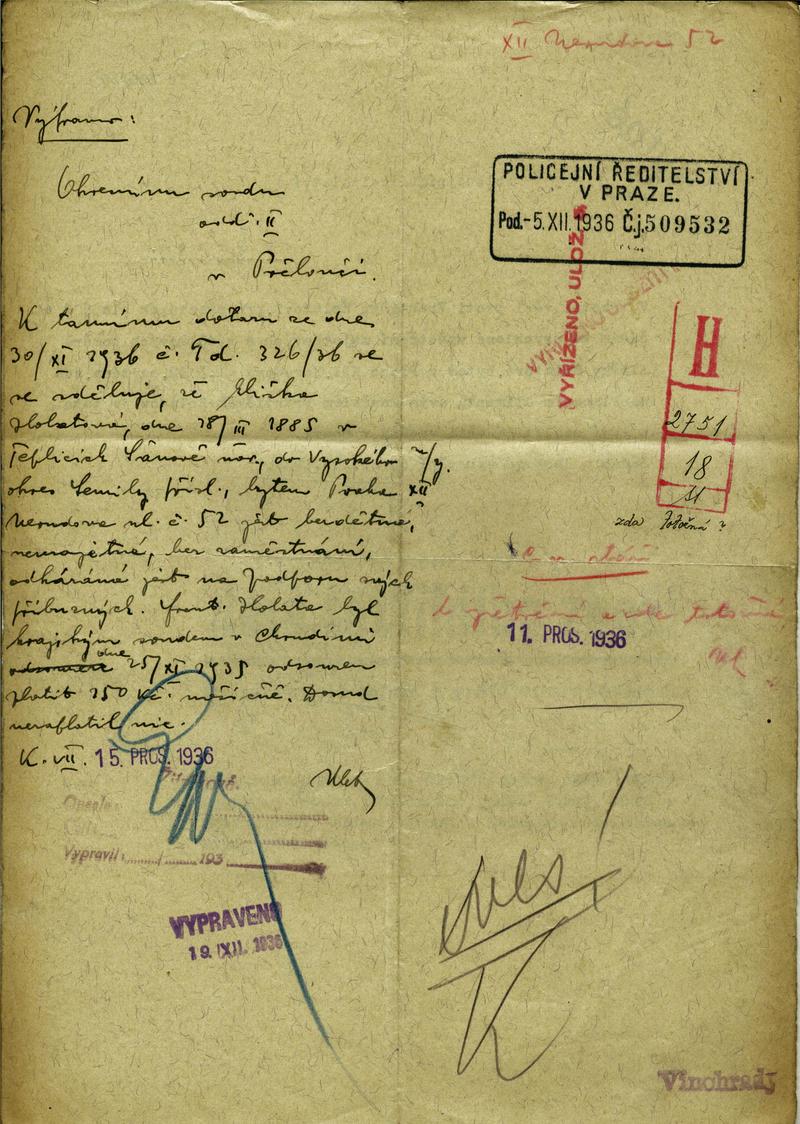 XII Nerudova 52
Vyřízeno:
POLICEJNÍ ŘEDITELSTVÍ
V PRAZE.
Pod. -5.XII.1936 Č.j.509532
Okresnímu soudu
odd. II
v Přelouči.
VYŘÍZENO, ULOŽ
H
2751
18
K tamnímu dotazu ze dne
30/XI 1936 č. Td. 326/36 se
se sděluje, že Eliška
Holatová, dne 18/III 1885 v
Teplicích Šanově nar., do Vysokého n/J.
okres Semily přísl., bytem Praha XII
Nerudova ul. č. 52 jest bezdětná,
nemajetná, bez zaměstnání,
odkázána jest na podporu svých
příbuzných. Frant. Holata byl
krajským soudem v Chrudimi
dne 25/XI 1935 odsouzen
platit 150 Kč. měsíčně. Dosud
nezaplatil nic.
zda totožná ?
11. PROS. 1936
K. VII. 15. PROS. 1936
Vypravil: 193
VYPRAVENO
19. XII. 1936
Vinohrady